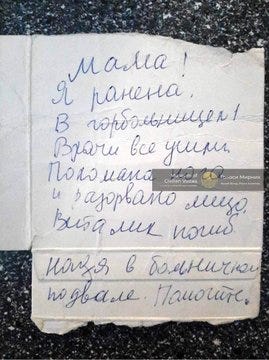 Мама!
Я ранена.
В горбольнице 1
Врачи все ушли.
Поломана нога
и разорвано лицо.
Виталик погиб.
Надя в больничном
подвале. Помогите.
Civilian Voices
Голоси Мирних